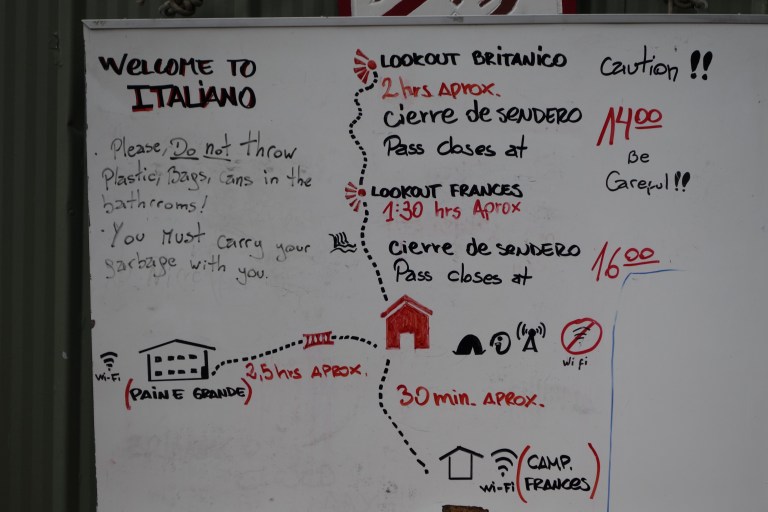 WELCOME TO
ITALIANO
· Please, Do not throw
Plastic, Bags, cans in the
bathrroms!
· You Must carry your
garbage with you.
LOOKOUT BRITANICO
2 hrs APROX.
cierre de SENDERO
Pass closes at
14 00
Caution !!
Be
Careful!!
LOOKOUT FRANCES
1:30 hrs Aprox
cierre de SENDERO
Pass closes at
16 00
wifi
Wi-Fi
(PAINE GRANDE)
2,5 hrs APROX.
30 min. APROX.
Wi-Fi
(CAMP.
FRANCES)